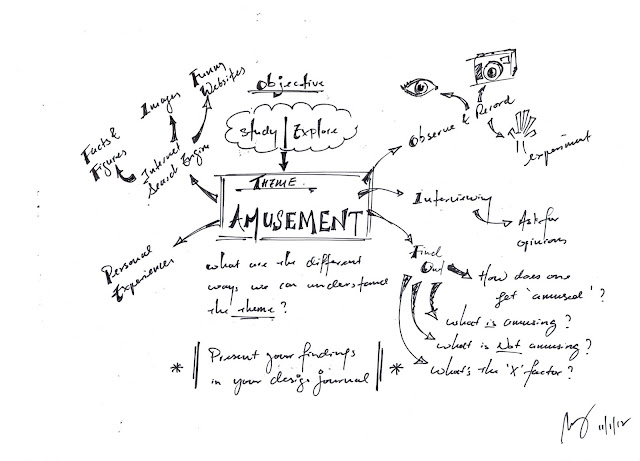 Objective
Study | Explore
THEME
AMUSEMENT
what are the different
ways we can understand
the theme?
* Present your findings
in your design journal *
Facts &
Figures
Images
Funny
Websites
Internet
Search Engine
Personal
Experiences
Observe & Record
experiment
Interviewing
Ask for
opinions
Find
Out
How does one
get 'amused'?
what is amusing?
what is Not amusing?
what's the 'X' factor?
11/1/12